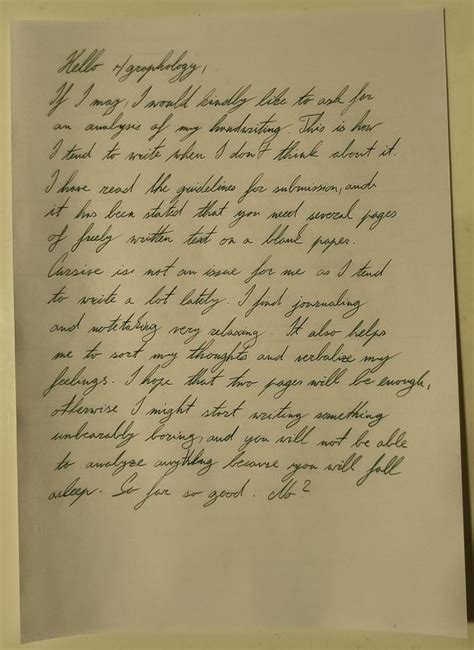 Hello r/graphology,
If I may, I would kindly like to ask for
an analysis of my handwriting. This is how
I tend to write when I don't think about it.
I have read the guidelines for submission, and
it has been stated that you need several pages
of freely written text on a blank paper.
Cursive is not an issue for me as I tend
to write a lot lately. I find journaling
and notetaking very relaxing. It also helps
me to sort my thoughts and verbalize my
feelings. I hope that two pages will be enough,
otherwise I might start writing something
unbearably boring, and you will not be able
to analyze anything because you will fall
asleep. So far so good. No?